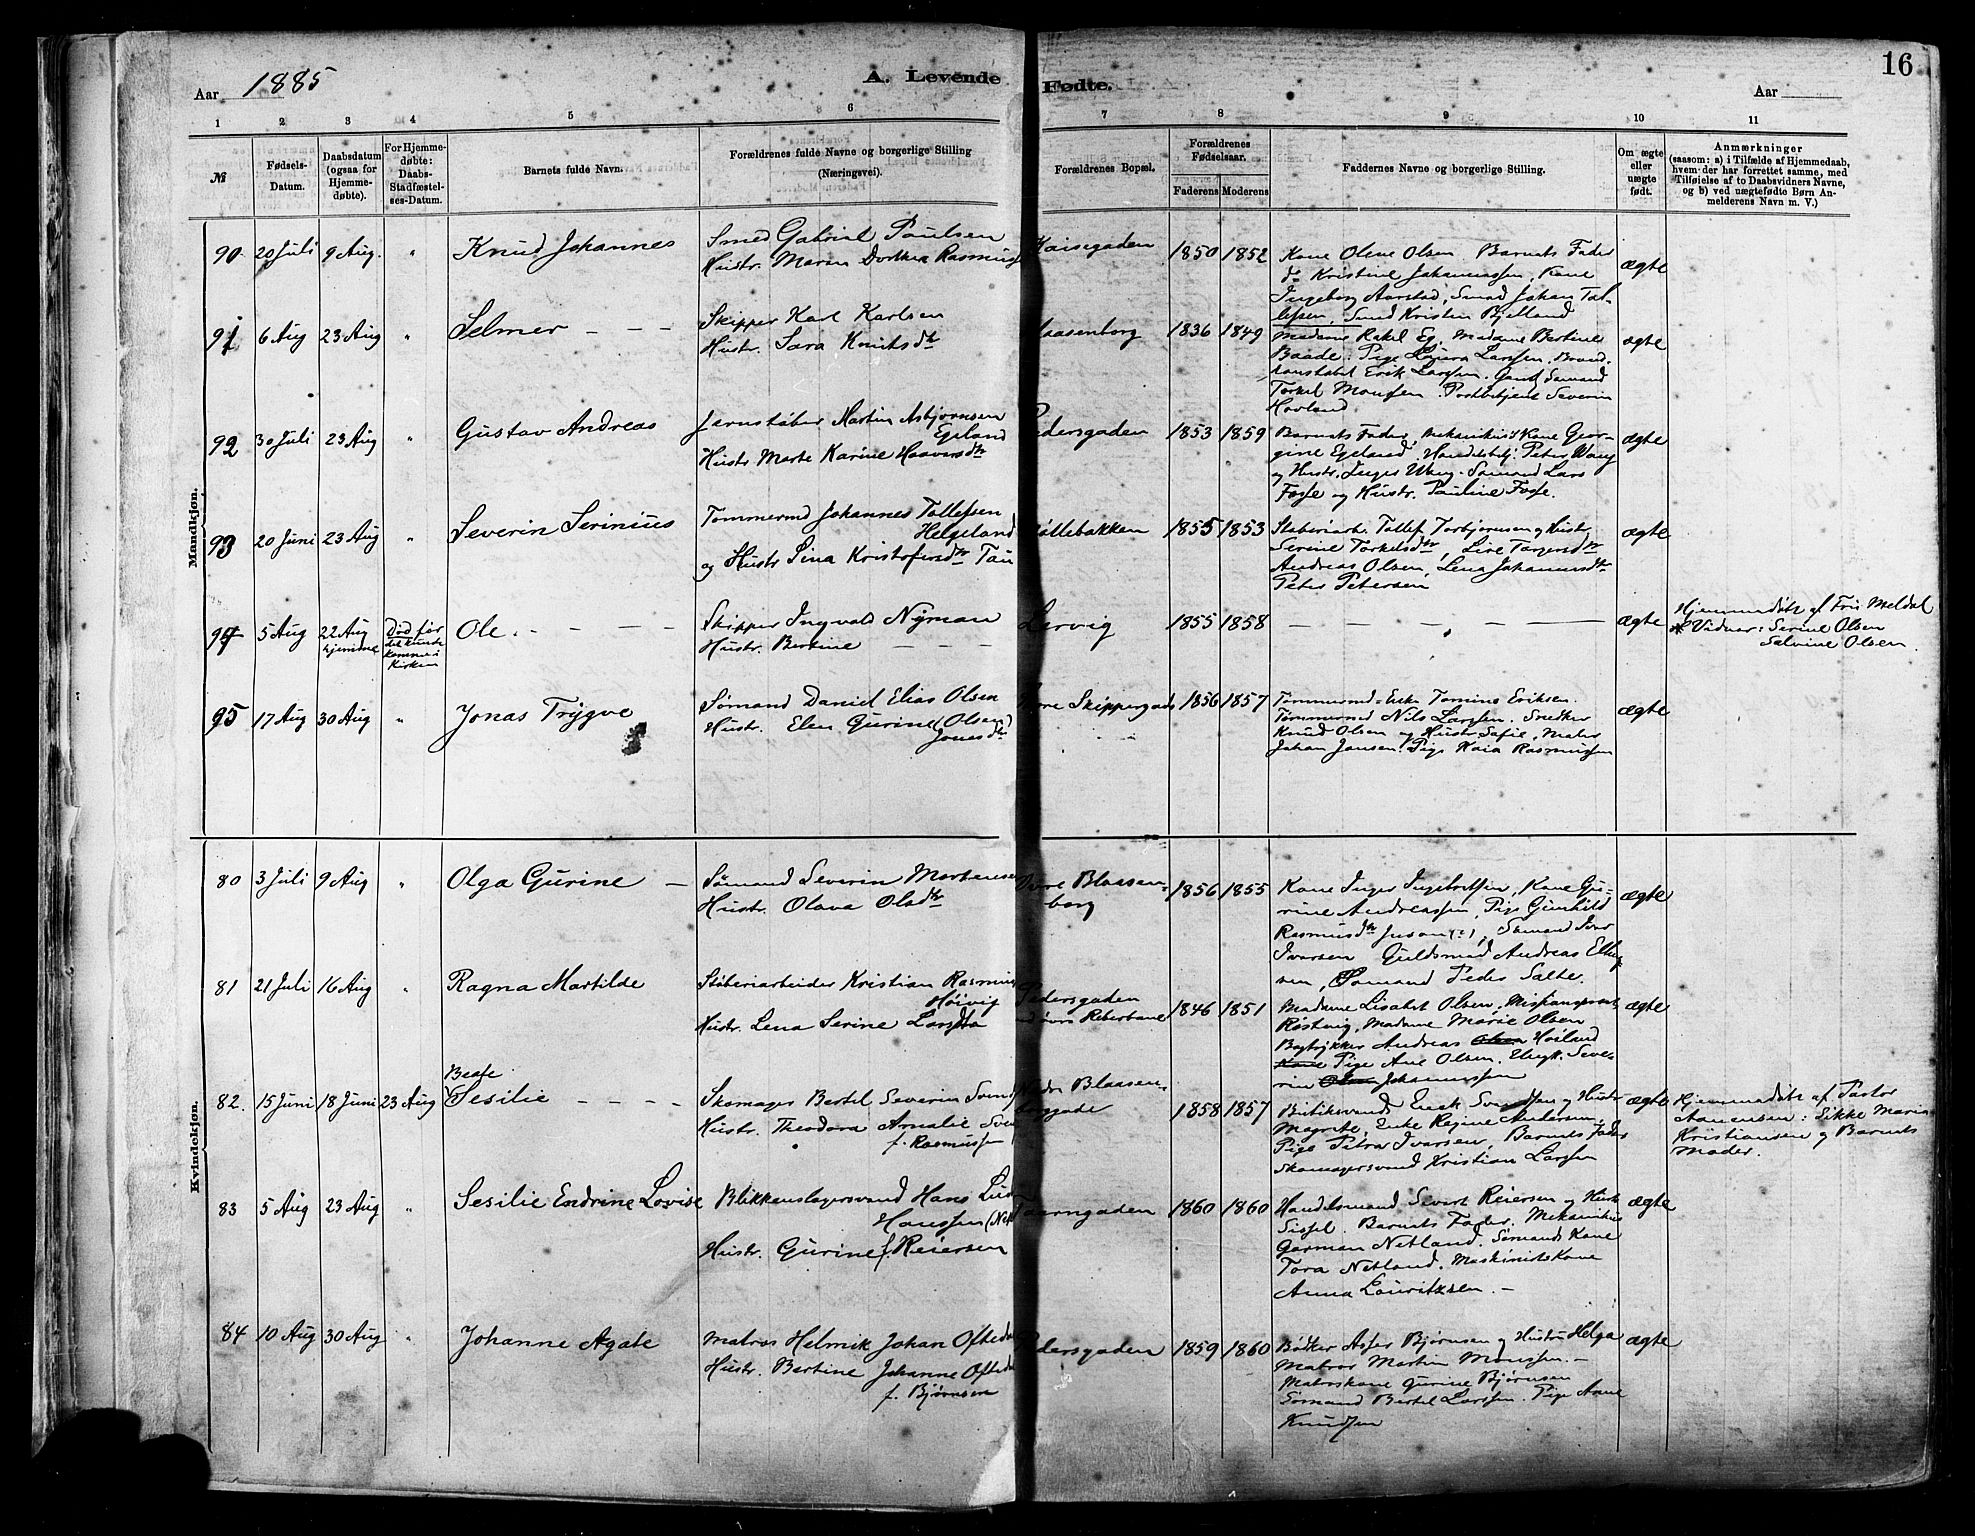 16
Aar 1885
A. Levende Fødte.
Aar
1 2 3 4 5 6 7 8 9 10 11
№
Fødsels-Datum.
Daabsdatum (ogsaa for Hjemmedøbte).
For Hjemmedøbte: Daabs-Stadfæstelses-Datum.
Barnets fulde Navn.
Forældrenes fulde Navne og borgerlige Stilling (Næringsvei).
Forældrenes Bopæl.
Forældrenes Fødselsaar.
Faderens Moderens
Faddernes Navne og borgerlige Stilling.
Om ægte eller uægte født.
Anmærkninger
(saasom: a) i Tilfælde af Hjemmedaab,
hvem der har forrettet samme, med
Tilføielse af to Daabsvidners Navne,
og b) ved uægtefødte Børn Anmelderens Navn m. V.)
Mandkjøn.
90. 20 Juli 9 Aug. " Knud Johannes
Smed Gabriel Paulsen
Hustr. Maren Dorthea Rasmus
Kaisegaden 1850 1852
Kone Olene Olsen. Barnets Fader
Kristine Johannessen, Kone
Ingeborg Aarstad, Smed Johan Tol-
lefsen, Smed Kristen Bjelland
ægte
91 6 Aug 23 Aug " Selmer – – –
Skipper Karl Karlsen
Hustr. Sara Knutsdtr
laasenborg 1836 1849
Madame Rakel Eg, Madame Bertine
Baade. Pige Laura Larssen. Brand-
konstabel Erik Larssen. Sømand
Torkel Monssen. Postbetjent Severin
Hovland
ægte
92 30 Juli 23 Aug " Gustav Andreas
Jernstøber Martin Asbjørnsen
Egeland
Hustr Marte Karine Haavorsdtr
Pedersgaden 1853 1859
Barnets Fader, Mekanikus Kone Geor-
gine Egeland. Handelsbetj. Peter Wang
og Hustr. Inger Wang. Sømand Lars
Fosse og Hustr. Pauline Fosse.
ægte
93 20 Juni 23 Aug " Severin Serinius
Tømmermd Johannes Tollefsen
Helgeland
og Hustr Sina Kristofersdtr Tau
øllebakken 1855 1853
Støberiarb. Tollef Torbjørnsen og Hustr
Serine Torkelsdtr, Live Torgersdtr
Andreas Olsen, Lena Johannesdtr
Peter Petersen
ægte
94 5 Aug 22 Aug hjemme
Død før
det kunde
komme i
Kirken
Ole. – – – –
Skipper Ingvald Nyman
Hustr. Bertine – – –
Lervig 1855 1858
– – – – –
ægte
Hjemmedøbt af Frk Meldal
Vidner: Serine Olsen
Salvine Olsen.
95 17 Aug 30 Aug " Jonas Trygve
Sømand Daniel Elias Olsen
Hustr. Elen Gurine (Olsen)
Jonasdtr
Øvre Skippergade 1856 1857
Tømmermd-Enke Tomine Eriksen
Tømmermd Nils Larssen. Snedker
Knud Olsen og Hustr Sofie, Mator
Johan Jansen. Pige Kaia Rasmussen
ægte
Kvindekjøn.
80 3 Juli 9 Aug " Olga Gurine –
Sømand Severin Mortensen
Hustr. Olava Olsdtr
Øvre Blaasen-
borg
1856 1855
Kone Inger Ingebretsen, Kone Gu-
rine Andreassen, Pige Gunhild
Rasmusdtr Juson (?), Sømand Iver
Iversen Guldsmed Andreas Elling-
sen, Sømand Peder Salte.
ægte
81 21 Juli 16 Aug " Ragna Martilde
Støberiarbeider Kristian Rasmus
Høivig
Hustr. Lena Serine Larsdtr
Pedersgaden
øvre Reberbane 1846 1851
Madame Lisabet Olsen, Missionsprest
Røstvig, Madame Marie Olsen
Bogtrykker Andreas Olsen Høiland
Kone Pige Ane Olsen. Severin
Olsen Johannessen
ægte
82. 15 Juni 18 Juni 23 Aug
Beate
Sesilie – – – –
Skomager Bertel Severin Svend
Hustr. Theodora Amalie Sven
f. Rasmussen
Nedre Blaasen-
borggade
1858 1857
Enok Svendsen og Hustr
Magrete, Enke Regine Andersen,
Pige Petra Iversen, Barnets Fader
Skomagersvend Kristian Larssen
ægte
Hjemmedøbt af Pastor
Aanensen: Sikke Maria
Kristiansen og Barnets
Moder.
83 5 Aug 23 Aug " Sesilie Endrine Lovise
Blikkenslagersvend Hans Lud
Hanssen (Net
Hustr. Gurine f. Reiersen
aarngaden 1860 1860
Handelsmand Severt Reiersen og Hustr
Sissel. Barnets Fader. Mekanikus
Gorman Netland. Sømands Kone
Tora Netland. Maskinistkone
Anna Lauritzsen. –
ægte
84 10 Aug 30 Aug " Johanne Agate
Matros Helmik Johan Oftedal
Hustr. Bertine Johanne Oftedal
f. Bjørnsen
Pedersgaden 1859 1860
Bødker Asser Bjørnsen og Hustru Helga
Matros Martin Monssen. –
Matroskone Gurine Bjørnsen
Sømand Bertel Larssen. Pige Anne
Knudsen
ægte